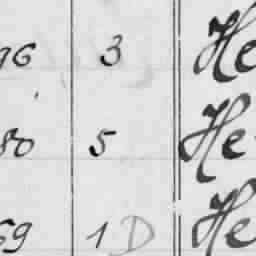 96 3 He
80 5 He
69 1 D He